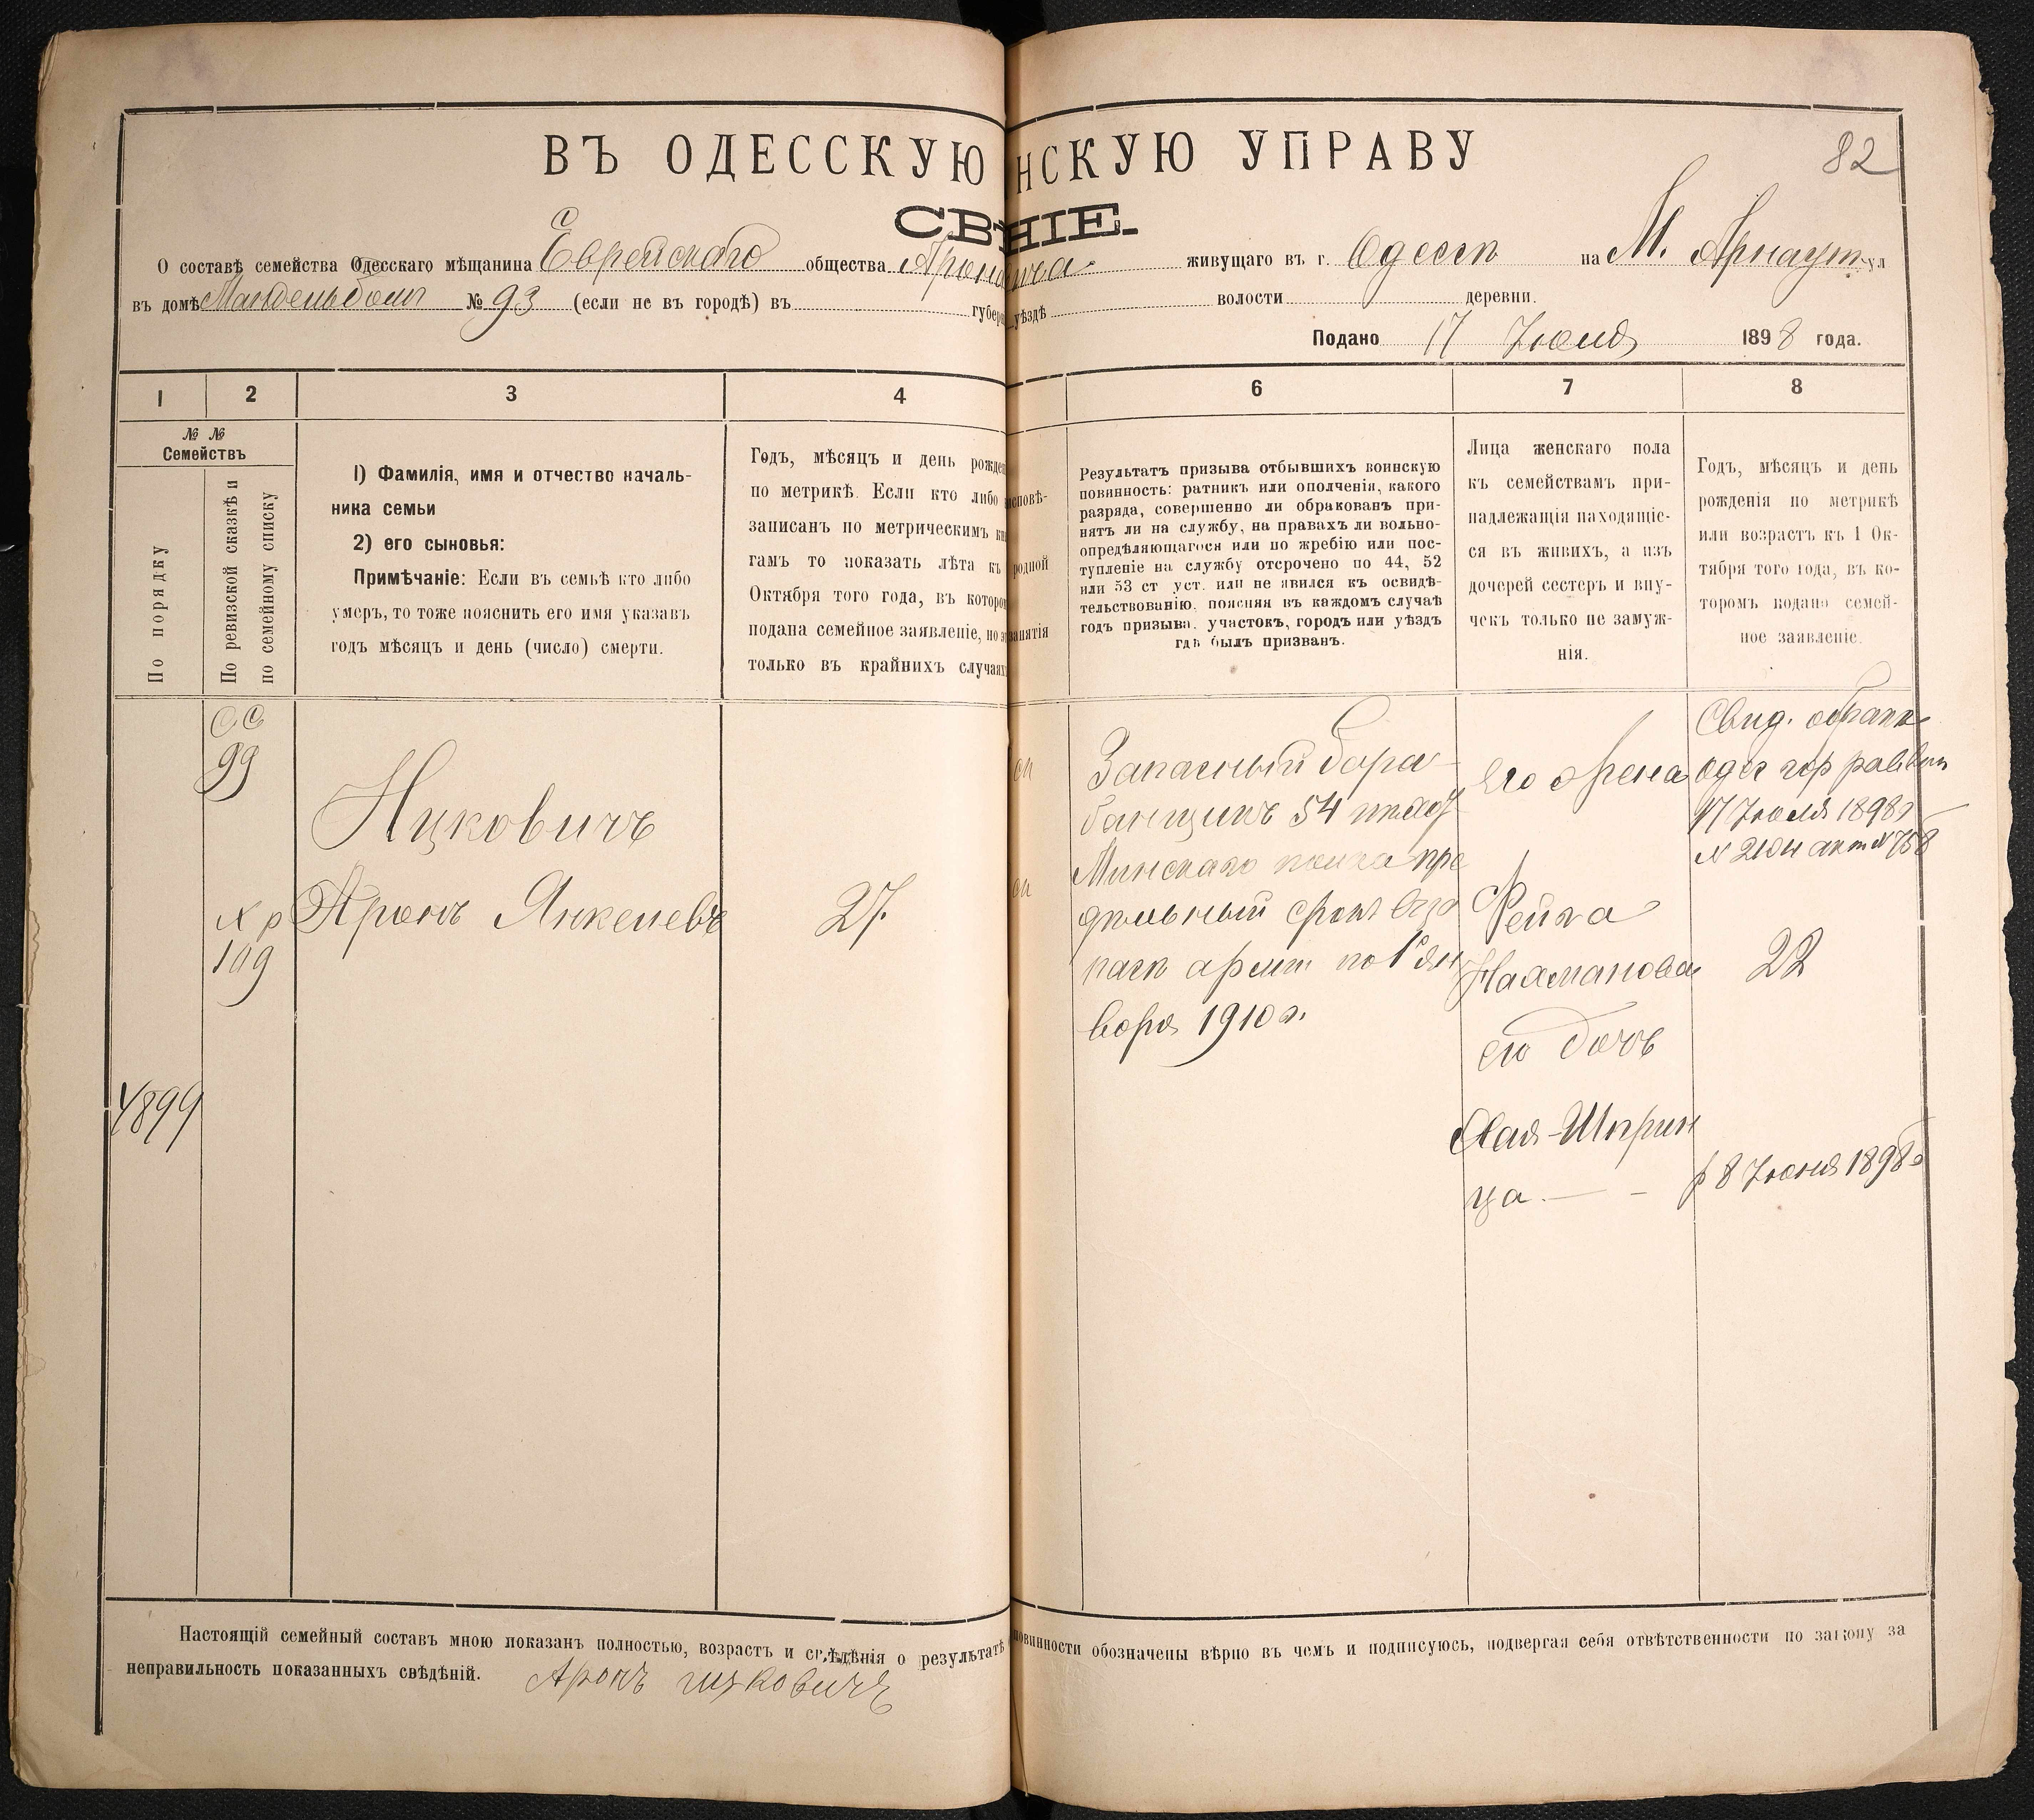 82
ВЪ ОДЕССКУЮ НСКУЮ УПРАВУ
СВѢ НІЕ.
О составѣ семейства Одесскаго мѣщанина Еврейскаго общества живущаго въ г. Одессѣ на М. Арнаут ул
въ домѣ № 93 (если не въ городѣ) въ губер уѣздѣ волости деревни.
Подано 17 Іюля 1898 года.
1 2 3 4 6 7 8
№ №
Семействъ
По порядку
По ревизской сказкѣ и
по семейному списку
1) Фамилія, имя и отчество началь-
ника семьи
2) его сыновья:
Примѣчаніе: Если въ семьѣ кто либо
умеръ, то тоже пояснить его имя указавъ
годъ мѣсяцъ и день (число) смерти.
Годъ, мѣсяцъ и день рожден
по метрикѣ. Если кто либо
записанъ по метрическимъ кни
гамъ то показать лѣта къ
Октября того года, въ которо
подана семейное заявленіе, но э
только въ крайнихъ случаях
исповѣ-
родной
занятія
Результатъ призыва отбывшихъ воинскую
повинность: ратникъ или ополченія, какого
разряда, совершенно ли обракованъ при-
нятъ ли на службу, на правахъ ли вольно-
опредѣляющагося или по жребію или пос-
тупленіе на службу отсрочено по 44, 52
или 53 ст уст. или не явился къ освидѣ-
тельствованію. поясняя въ каждомъ случаѣ
годъ призыва. участокъ, городъ или уѣздъ
гдѣ былъ призванъ.
Лица женскаго пола
къ семействамъ при-
надлежащія находящіе-
ся въ живихъ, а изъ
дочерей сестеръ и вну-
чекъ только не замуж-
нія.
Годъ, мѣсяцъ и день
рожденія по метрикѣ
или возрастъ къ 1 Ок-
тября того года, въ ко-
торомъ подано семей-
ное заявленіе.
СС
99
Ицковичъ
Х р
109
Аронъ Янкелевъ
27.
4899
Запасный бара-
банщикъ 54 пѣхот
Минскаго полка пре
дѣльный срокъ въ за
пасѣ арміи по 1е Ян
воря 1910 г.
Его жена
Рейза
Нахманова
22
его дочь
Хая-Шприн
ца. — -
р 8 Іюня 1898 г
Свид. о бракѣ
Одес гор раввин
17 Іюля 1898 г
Настоящій семейный составъ мною показанъ полностью, возрастъ и свѣдѣнія о результатѣ повинности обозначены вѣрно въ чемъ и подписуюсь, подвергая себя отвѣтственности по закону за
неправильность показанныхъ свѣдѣній. Аронъ ицковичъ